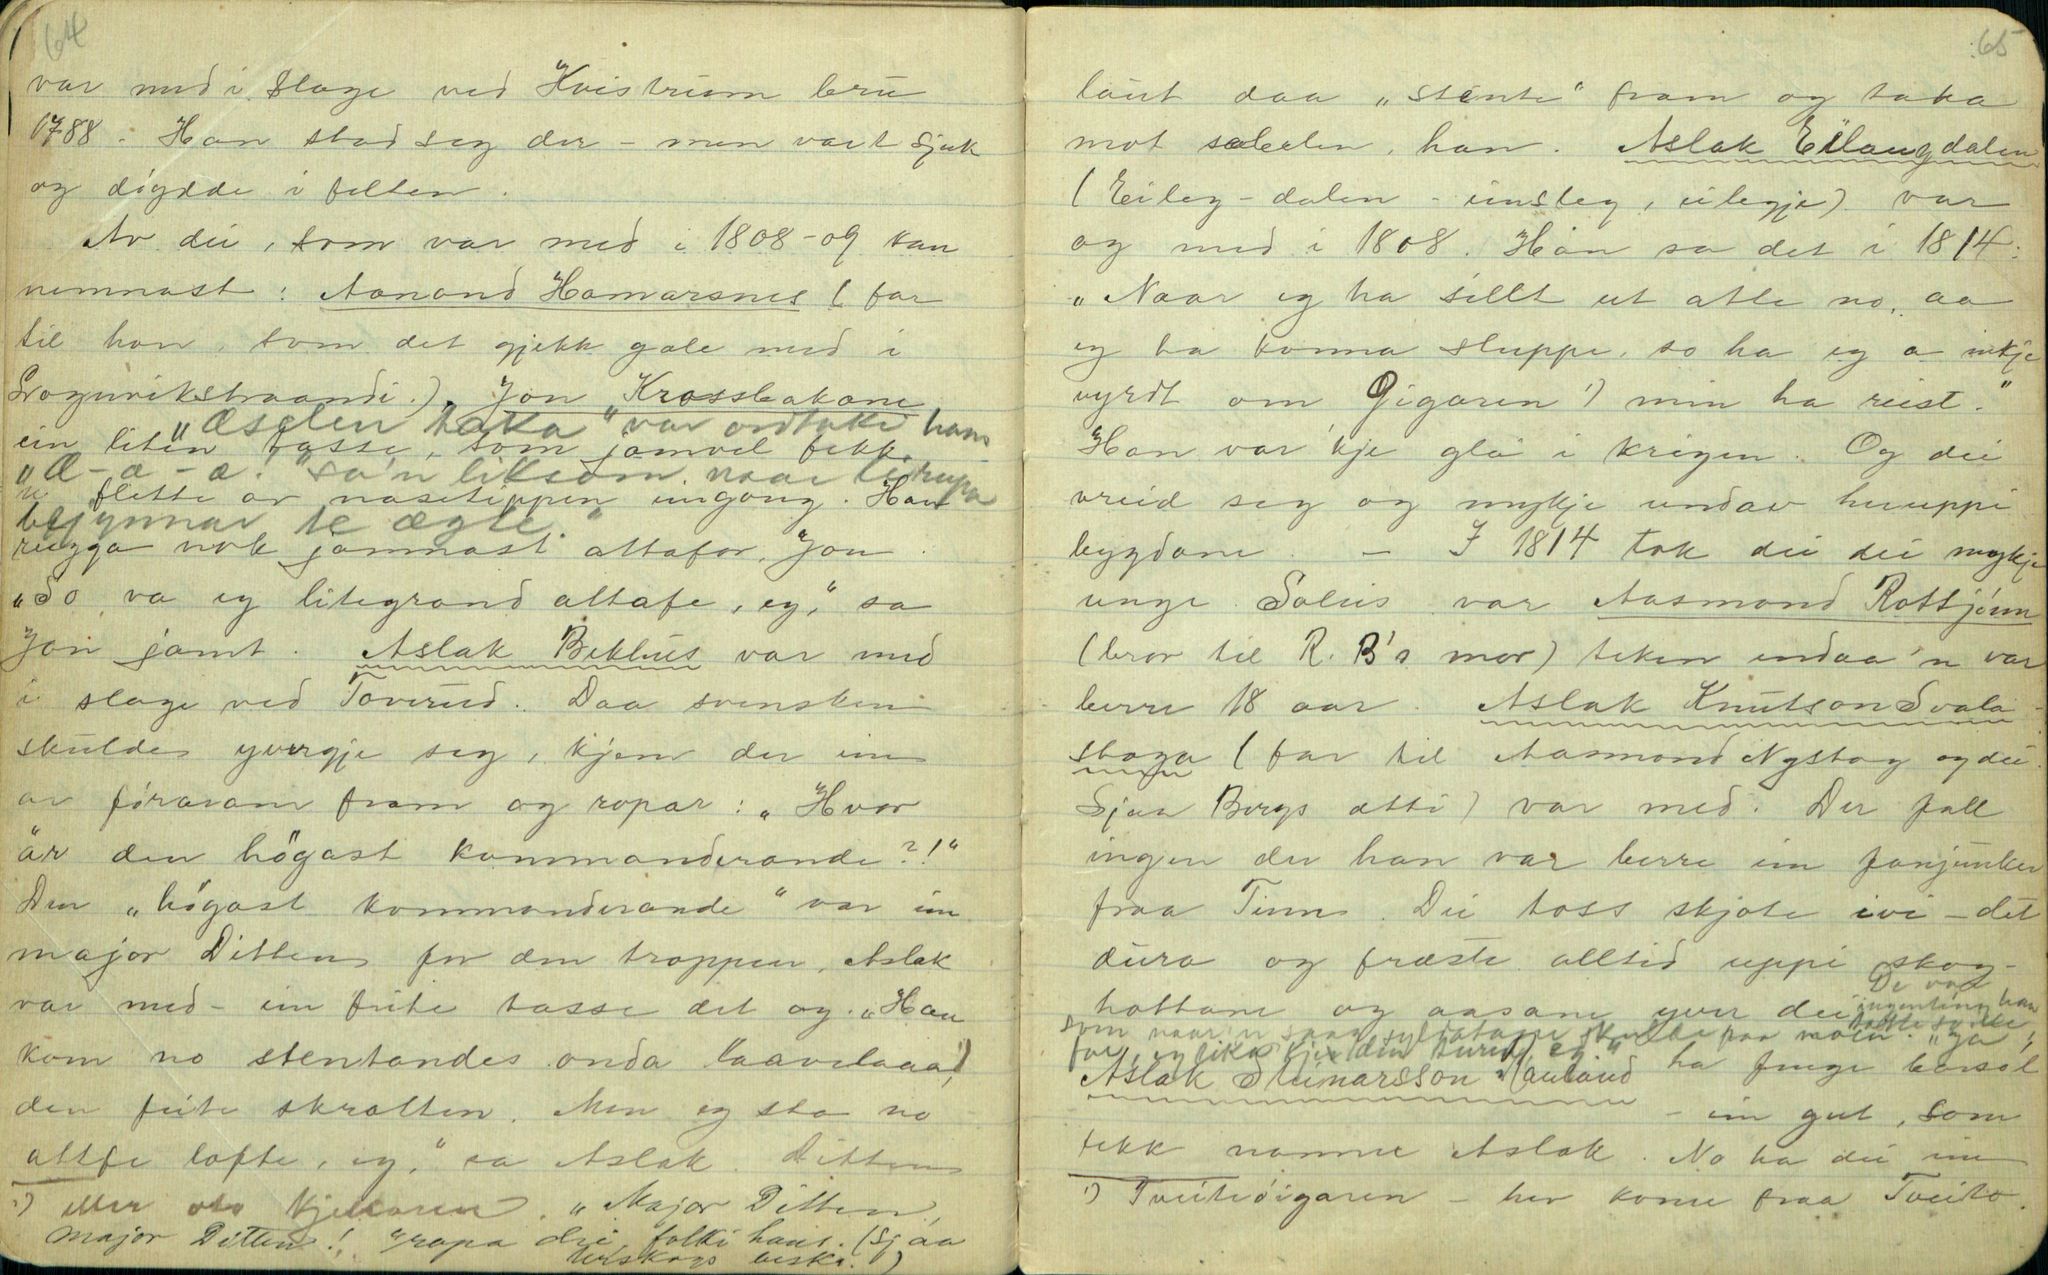 64
var med i slage ved Kvistrum bru
1788. Han stod seg der – men vart sjuk
og døydde i felten.
Av dei, som var med i 1808-09 kan
nemnast: Aanond Hamarsnes (far
til han, som det gjekk gale med i
Jon Krossbakane
"æselen taka" var ordtakе hans
ein liten tasse, som jamvel fekk
"Æ-æ-æ!" sa'n liksom naar
flette av nasetippen eingong. Han
begynnar te ægle."
rugga nok jamnast attafor, Jon.
"So va eg litegrand attafe, eg," sa
Jon jamt. Aslak Bekhus var med
i slage ved Toverud. Daa svensken
skulde yvergje seg, kjem der ein
av førarane fram og ropar: "Hvor
är den högast kommanderande?!"
Den "högast kommanderande" var ein
major Ditten for den troppen, Aslak
var med – ein feite tasse det og. "Han
kom no stentandes onda laavelaaa 1),
den feite skrotten. Men eg sto no
attfe lofte, eg," sa Aslak. Ditten
1) eller Kjelaren. "Major Ditten,
major Ditten!" ropa dei, folki hans. (Sjaa
65
laut daa "stente" fram og taka
mot sabelen, han. Aslak Eilaugdalen
(Eiley-dalen – einsleg, eilegje) var
og med i 1808. Han sa det i 1814:
"Naar eg ha sillt ut atte no, aa
eg ha konna sleppe, so ha eg a inkje
vyrdt om Øigaren 1) min ha reist."
Han var 'kje gla i krigen. Og dei
vreid seg og mykje undav heruppi
bygdane. – I 1814 tok dei dei mykje
unge. Soleis var Aasmond Rottjønn
(bror til R. B's mor) teken endaa 'n var
berre 18 aar. Aslak Knutson Svala-
stoga (far til Aasmond Nystog og dei.
Sjaa Borgs ætti) var med. Der fall
ingen der han var berre ein fanjunker
fraa Tinn. Dei toss skjote ivi – det
dura og fræste alltid uppi skog-
hottane og aasane yver dei. De va
ingenting han
som naar'n
Aslak Steinarsson Rauland ha fenge barsøl
– ein gut, som
fekk namne Aslak. No ha dei ein
1) Tveitøigaren – her kome fraa Tveito.